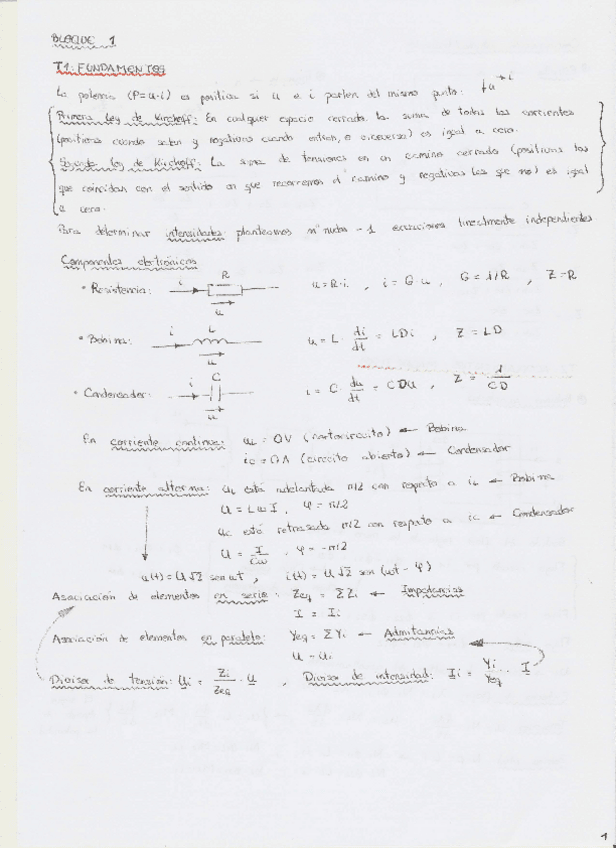 BLOQUE 1
T1: FUNDAMENTOS
La potencia (P=u·i) es positiva si u e i parten del mismo punto: u i
Primera Ley de Kirchoff: En cualquier espacio cerrado la suma de todas las corrientes
(positivas cuando salen y negativas cuando entran, o viceversa) es igual a cero.
Segunda Ley de Kirchoff: La suma de tensiones en un camino cerrado (positivas las
que coincidan con el sentido en que recorremos el camino y negativas las que no) es igual
a cero.
Para determinar intensidades planteamos nº nudos - 1 ecuaciones linealmente independientes
Componentes electrónicos
• Resistencia: i R u u = R·i , i = G·u , G = 1/R , Z = R
• Bobina: i L u u = L · di/dt = LDi , Z = LD
• Condensador: i C u i = C · du/dt = CDu , Z = 1/CD
En corriente continua: uL = 0V (cortocircuito) ← Bobina
ic = 0A (circuito abierto) ← Condensador
En corriente alterna: uL está adelantada π/2 con respecto a iL ← Bobina
U = LωI , φ = π/2
uc está retrasada π/2 con respecto a ic ← Condensador
U = I/Cω , φ = -π/2
u(t) = U√2 sen ωt , i(t) = U√2 sen (ωt - φ)
Asociación de elementos en serie: Zeq = ΣZi ← Impedancias
I = Ii
Asociación de elementos en paralelo: Yeq = ΣYi ← Admitancias
U = Ui
Divisor de tensión: Ui = Zi/Zeq · U , Divisor de intensidad: Ii = Yi/Yeq · I
1